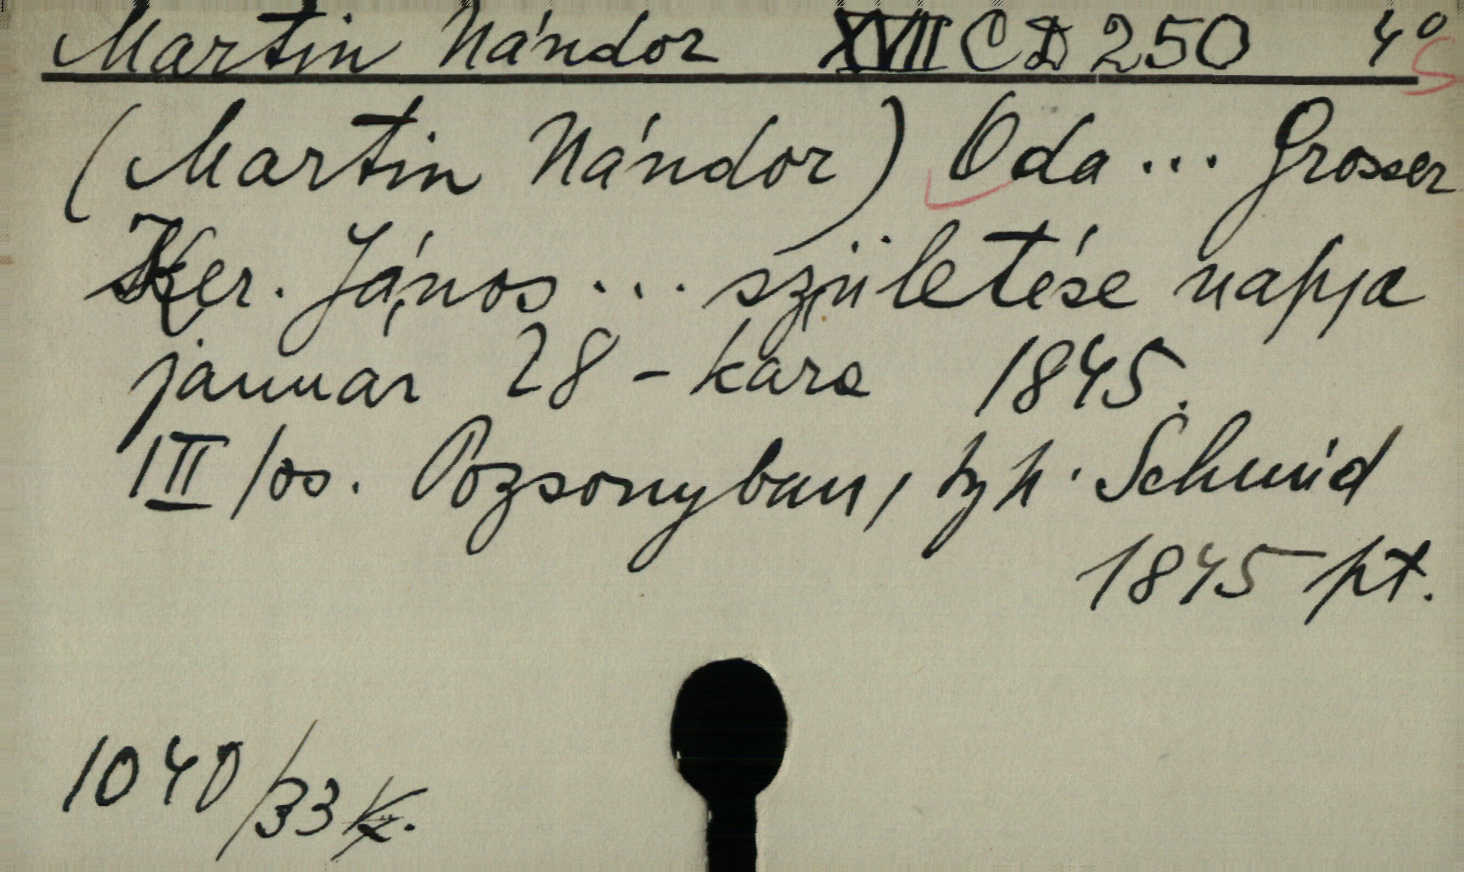 Martin Nándor XVIII CD 250 4°
(Martin Nándor) Oda ... Grosser
Ker. János ... születése napja
januar 28-kára 1845.
III/os. Pozsonyban, tyh. Schmid
1845 pt.
1040/33 K.